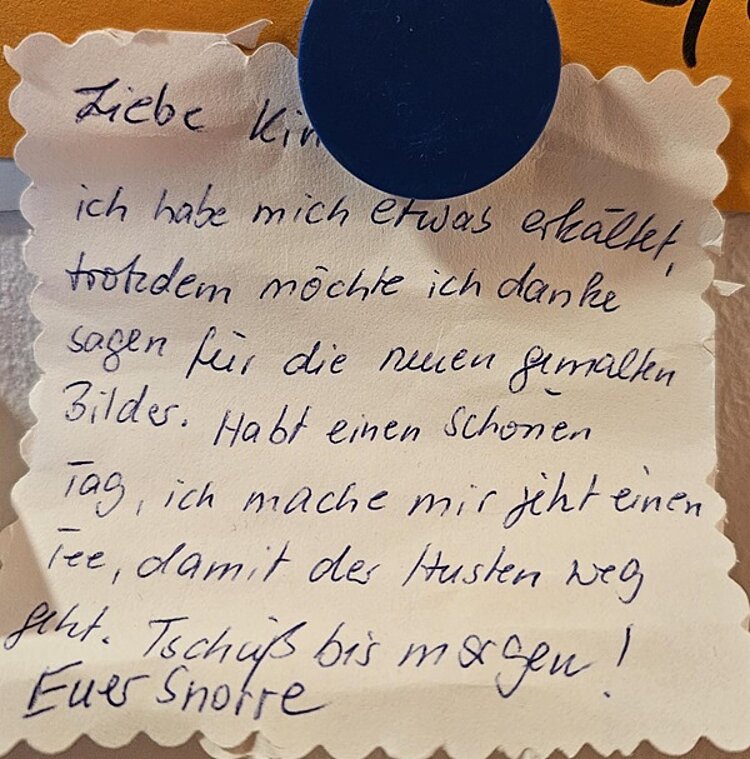 Liebe Kin
ich habe mich etwas erkältet,
trotzdem möchte ich danke
sagen für die neuen gemalten
Bilder. Habt einen schönen
Tag, ich mache mir jetzt einen
Tee, damit der Husten weg
geht. Tschüß bis morgen!
Euer Snorre